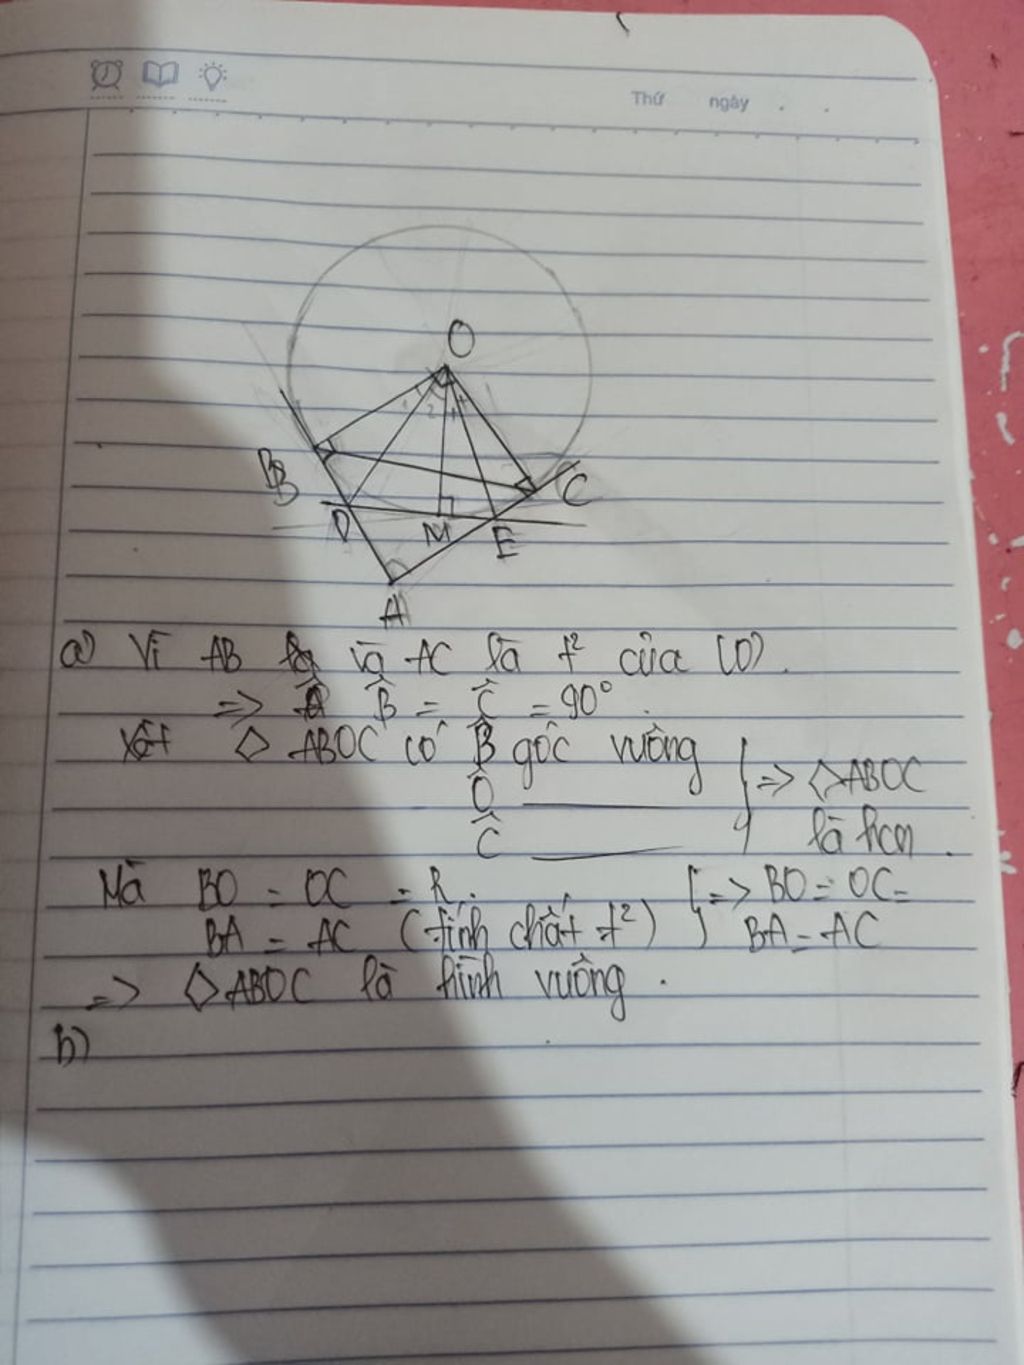 Thứ ngày . .
O
1 2
B
B
C
D
M
E
A
a) Vì AB và AC là t² của (O).
=> B̂ = Ĉ = 90°.
Xét ◇ ABOC có B̂ góc vuông
Ô ——— => ◇ABOC
Ĉ ——— là hcn.
Mà BO = OC = R. => BO = OC =
BA = AC (tính chất t²) BA = AC
=> ◇ABOC là hình vuông.
b)